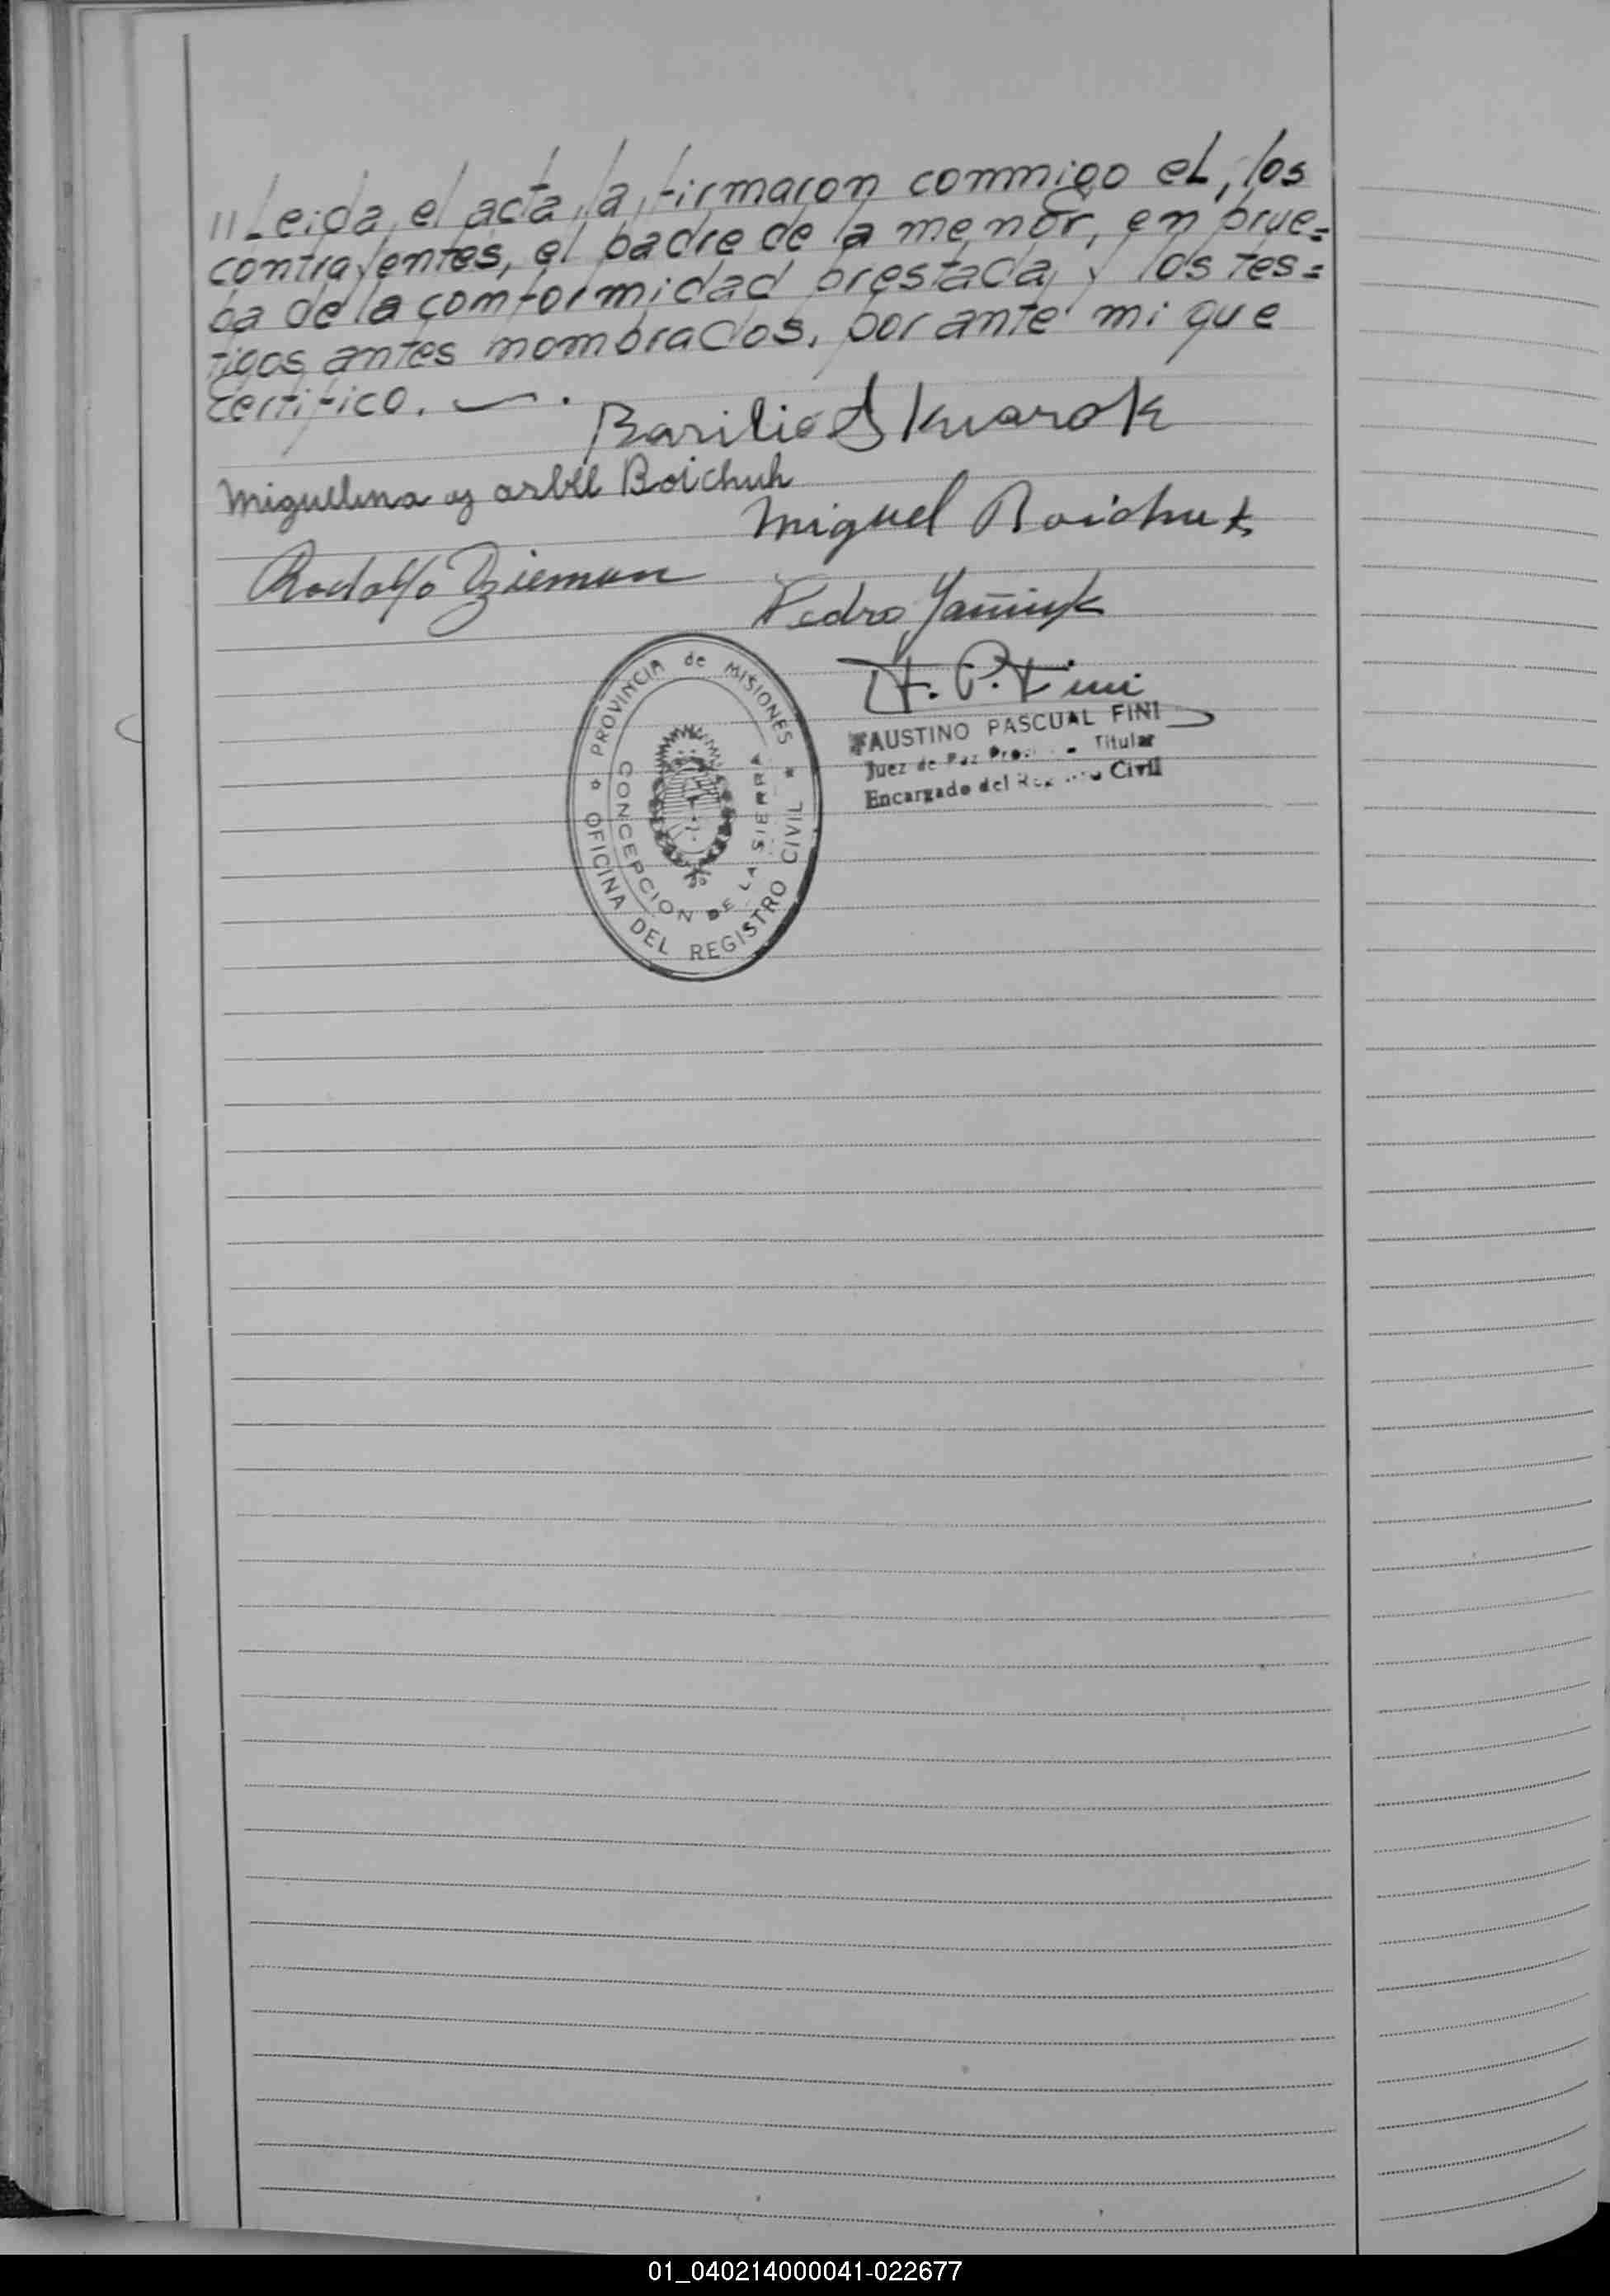 //Leida el acta, la firmaron conmigo el, los
contrayentes, el padre de la menor, en prue=
ba de la conformidad prestada, y los tes=
tigos antes nombrados, por ante mi que
certifico.
Basilio Skwarok
Miguelina Ysabel Boichuk
Miguel Boichuk
Rodolfo Dzieman
Pedro Yaniuk
F. P. Fini
FAUSTINO PASCUAL FINI
Juez de Paz Titular
Encargado del Civil
PROVINCIA de MISIONES
OFICINA DEL REGISTRO CIVIL
CONCEPCION DE LA SIERRA
01_040214000041-022677